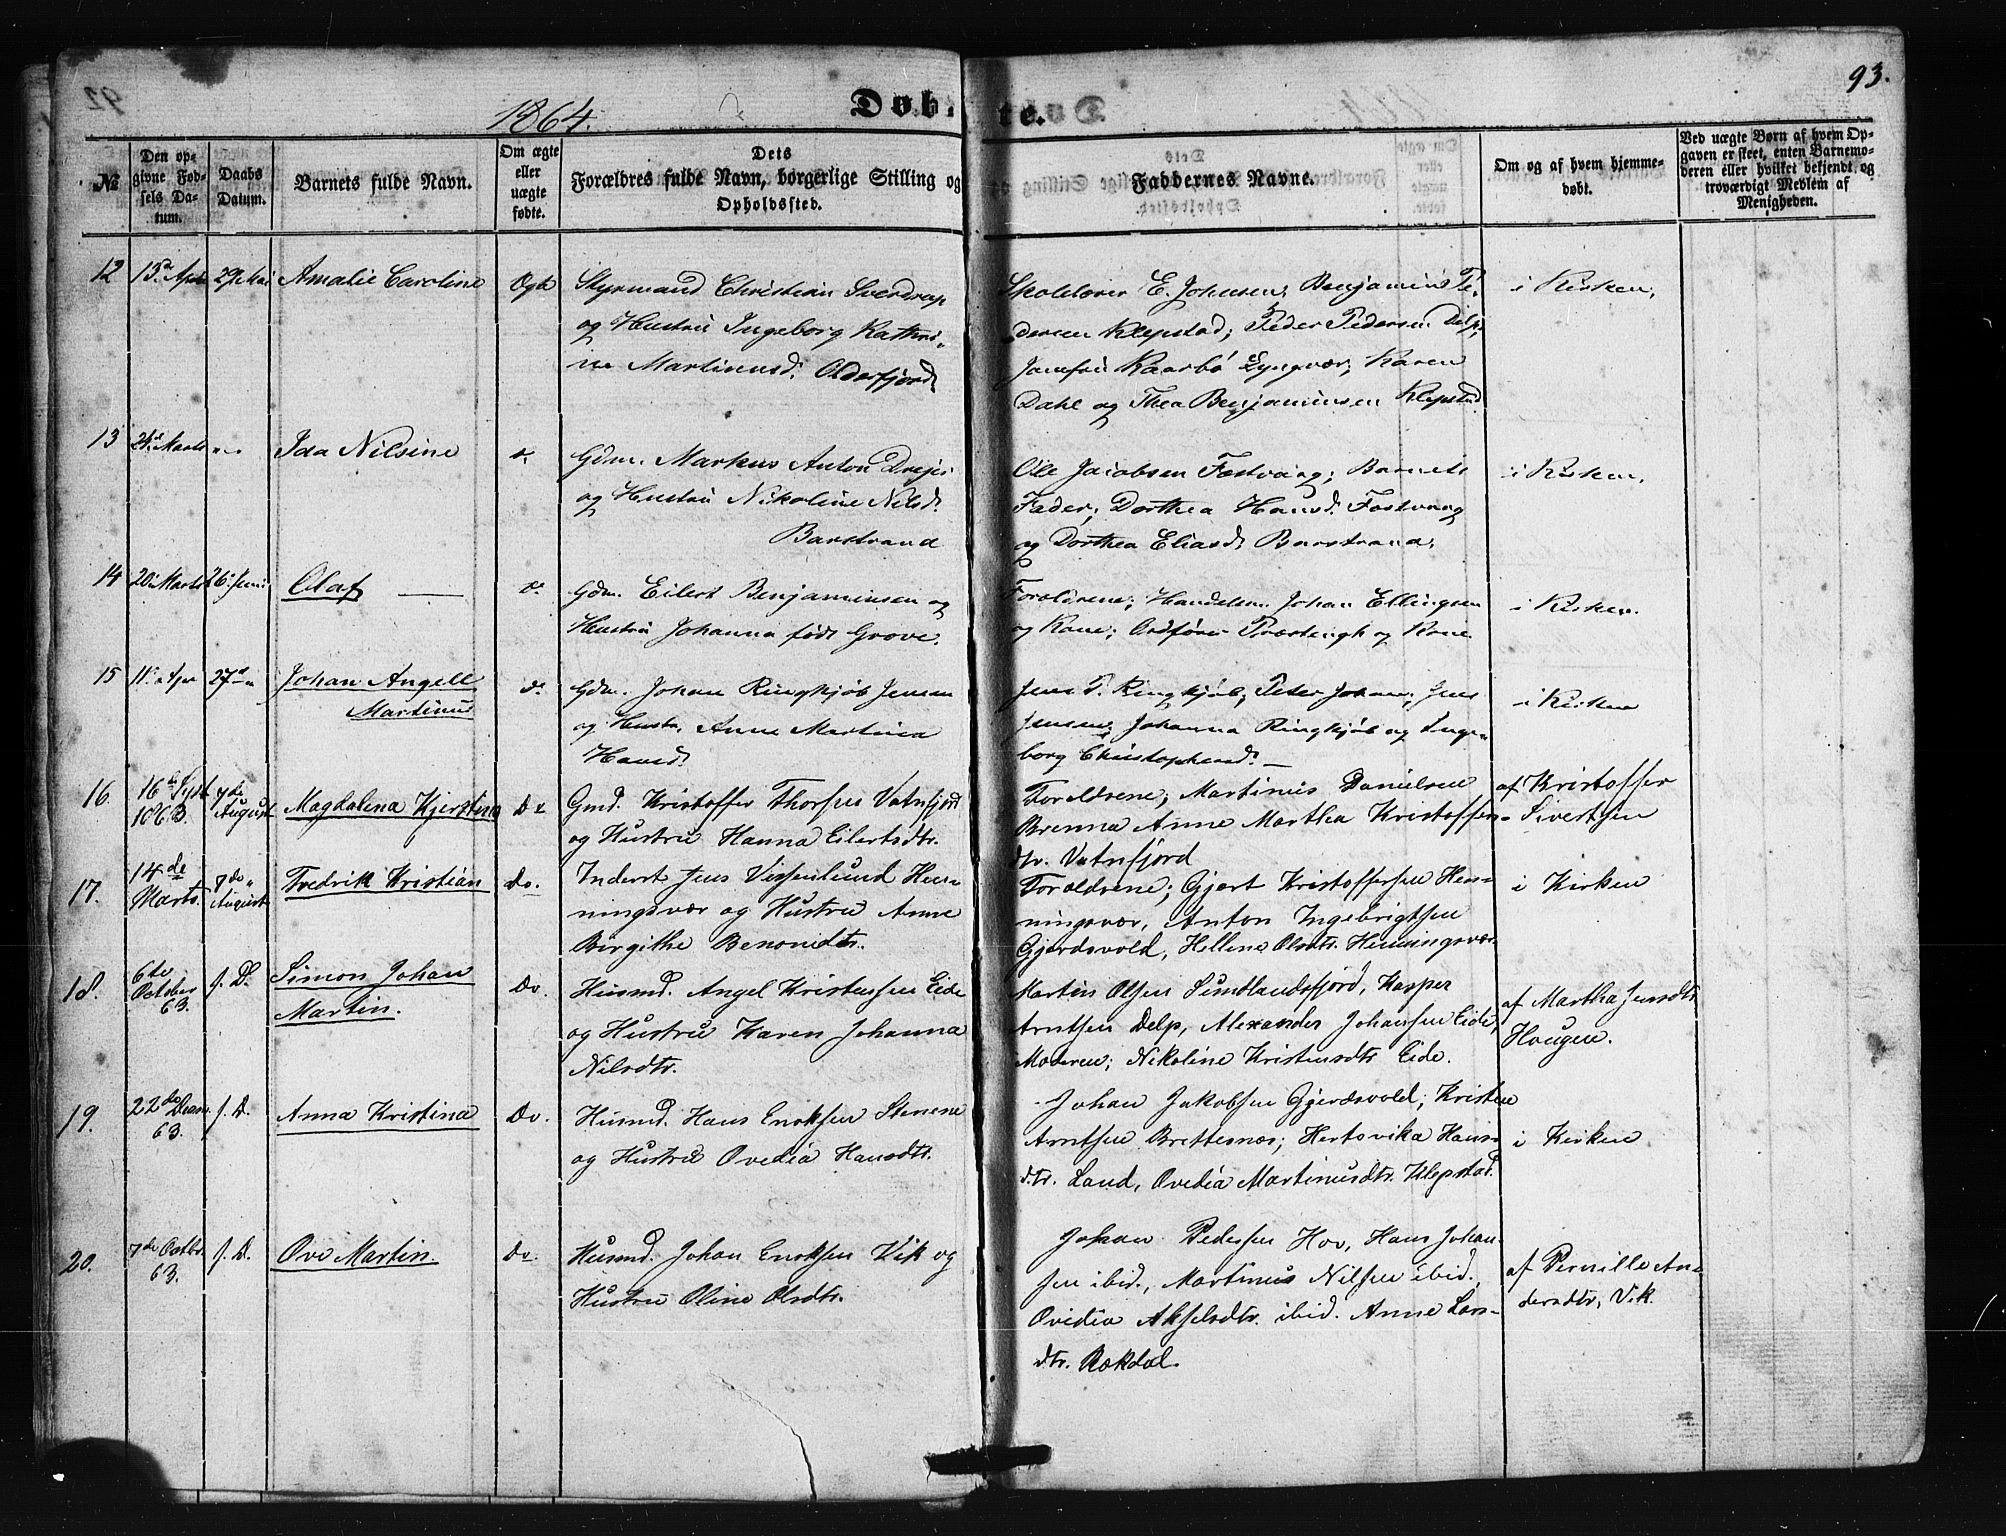 1864.
Døbte.
93.
№
Den opgivne Fødsels Datum.
Daabs Datum.
Barnets fulde Navn.
Om ægte eller uægte fødte.
Dets Forældres fulde Navn, borgerlige Stilling og Opholdssted.
Faddernes Navne.
Om og af hvem hjemmedøbt.
Ved uægte Børn af hvem Opgaven er skeet, enten Barnemoderen eller hvilket bekjendt og troværdigt Medlem af Menigheden.
12 Amalie Caroline
Styrmand Christian Sverdrup
og Hustru Ingeborg Kathri-
ne Martinusd. Olderfjord
Skolelærer E. Johnsen, Benjamin Pe-
dersen Klepstad; Peder Pedersen Delp;
Jomfru Kaarbø Lyngvær; Karen
Dahl og Thea Benjaminsen Klepstad
i Kirken,
13 Ida Nilsine
Gdm. Markus Anton
og Hustru Nikoline Nilsd.
Barstrand
Ole Jacobsen Festvaag; Barnets
Fader; Dorthea Hansd. Festvaag
og Dorthea Eliasd. Barstrand.
i Kirken.
14 20 Marts 26 Juni Olaf
Gdm. Eilert Benjaminsen og
Hustru Johanna født Grove.
Forældrene; Handelsm. Johan Ellingsen
og Kone; Ordfører og Kone
i Kirken.
15 Johan Angell
Martinus
Gdm. Johan Ringkjøb Jensen
og Hustr. Anne Martina
Hansd.
Jens P. Ringkjøb; Peter Johans; Jens
Jensen; Johanna Ringkjøb og Inge-
borg Christophersd. —
i Kirken
16. 16de Sept 1863. 7de August Magdalena Kjerstina Do
Gmd. Kristoffer Thorsen Vatnfjord
og Hustru Hanna Eilertsdtr.
Forældrene; Martinus Danielsen
Brenna Anne Martha Kristoffers-
dtr. Vatnfjord
af Kristoffer
Sivertsen
17. 14de Marts. 7de August Fredrik Kristian Do.
Inderst Jens Vissenlund Hen-
ningsvær og Hustru Anne
Birgithe Benonidtr.
Forældrene; Gjert Kristoffersen Hen-
ningsvær, Anton Ingebrigtsen
Gjerdsvold, Hellena Olsdtr. Henningsvær
i Kirken
18. 6te October 63. s. D. Simon Johan
Martin. Do.
Husmd. Angel Kristensen Eide
og Hustru Karen Johanna
Nilsdtr.
Martin Olsen Sundlandsfjord, Kasper
Arntsen Delp, Alexander Johansen Eide,
Moderen; Nikoline Kristensdtr Eide.
af Martha Jensdtr
Haugen.
19. 22de Decem. 63. s. D. Anna Kristina Do.
Husmd. Hans Enoksen Stenene
og Hustru Ovedia Hansdtr.
Johan Jakobsen Gjerdsvold; Kristen
Arntsen Brettesnæs; Hertsvika Hans-
dtr. Land, Ovedia Martinusdtr. Klepstad.
i Kirken
20. 7de Octbr. 63. s. D. Ove Martin. Do.
Husmd. Johan Enoksen Vik og
Hustru Oline Olsdtr.
Johan Pedersen Hov, Hans Johan-
sen ibid., Martinus Nilsen ibid.
Ovedia Akselsdtr. ibid. Anne Lars-
dtr. Rækdal.
af Pernille An-
dersdtr, Vik.